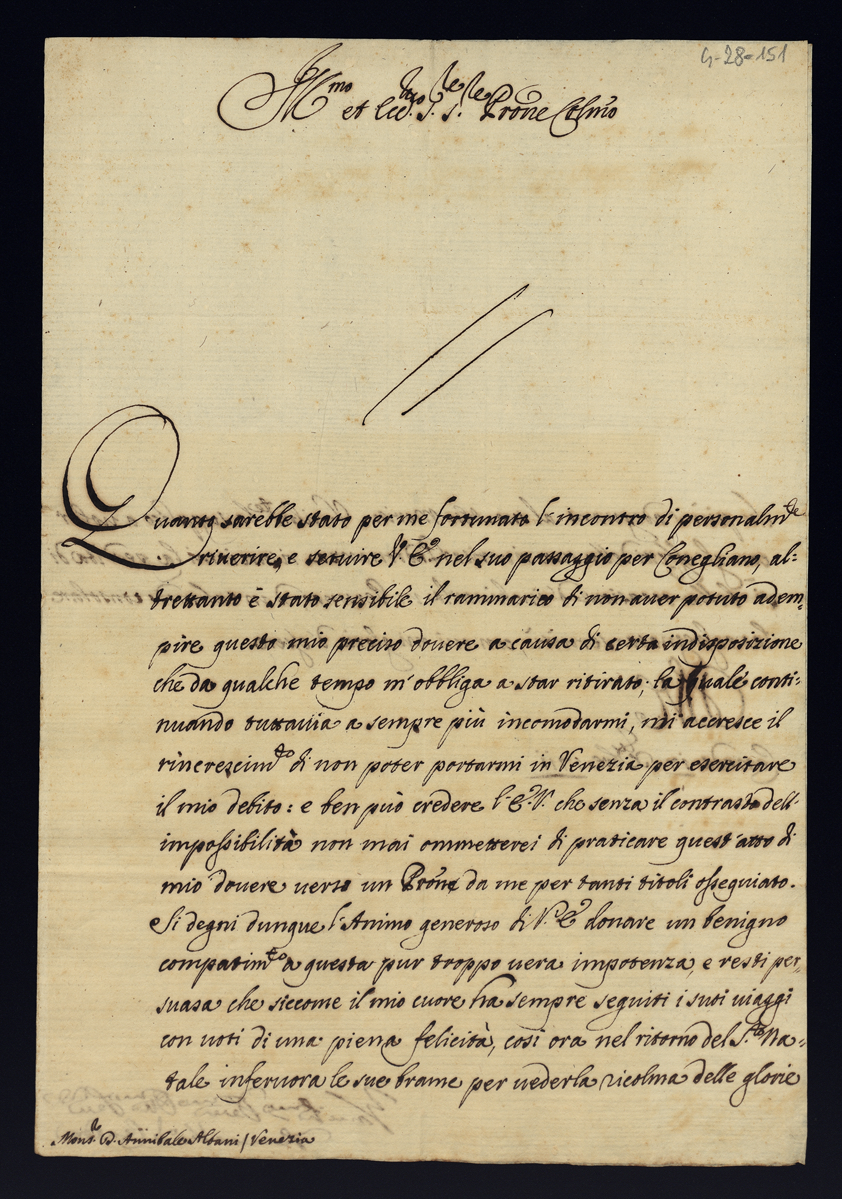 4-28-151
Ill.mo et Ecc.mo S.r S.r Prōne Col.mo
Quanto sarebbe stato per me fortunato l'incontro di personalm.te
riuerire, e seruire V.E. nel suo passaggio per Conegliano, al=
trettanto è stato sensibile il rammarico di non auer potuto adem=
pire questo mio preciso douere a causa di certa indisposizione
che da qualche tempo m'obbliga a star ritirato; la quale conti=
nuando tuttauia a sempre più incomodarmi, mi accresce il
rincrescim.to di non poter portarmi in Venezia per esercitare
il mio debito: e ben può credere l'E.V. che senza il contrasto dell'
impossibilità non mai ommetterei di praticare quest'atto di
mio douere verso un Prōne da me per tanti titoli ossequiato.
Si degni dunque l'Animo generoso di V.E. donare un benigno
compatim.to a questa pur troppo uera impotenza, e resti per=
suasa che siccome il mio cuore ha sempre seguiti i suoi uiaggi
con uoti di una piena felicità, così ora nel ritorno del S.to Na=
tale inferuora le sue brame per vederla ricolma delle glorie
Mons.r D. Annibale Albani / Venezia